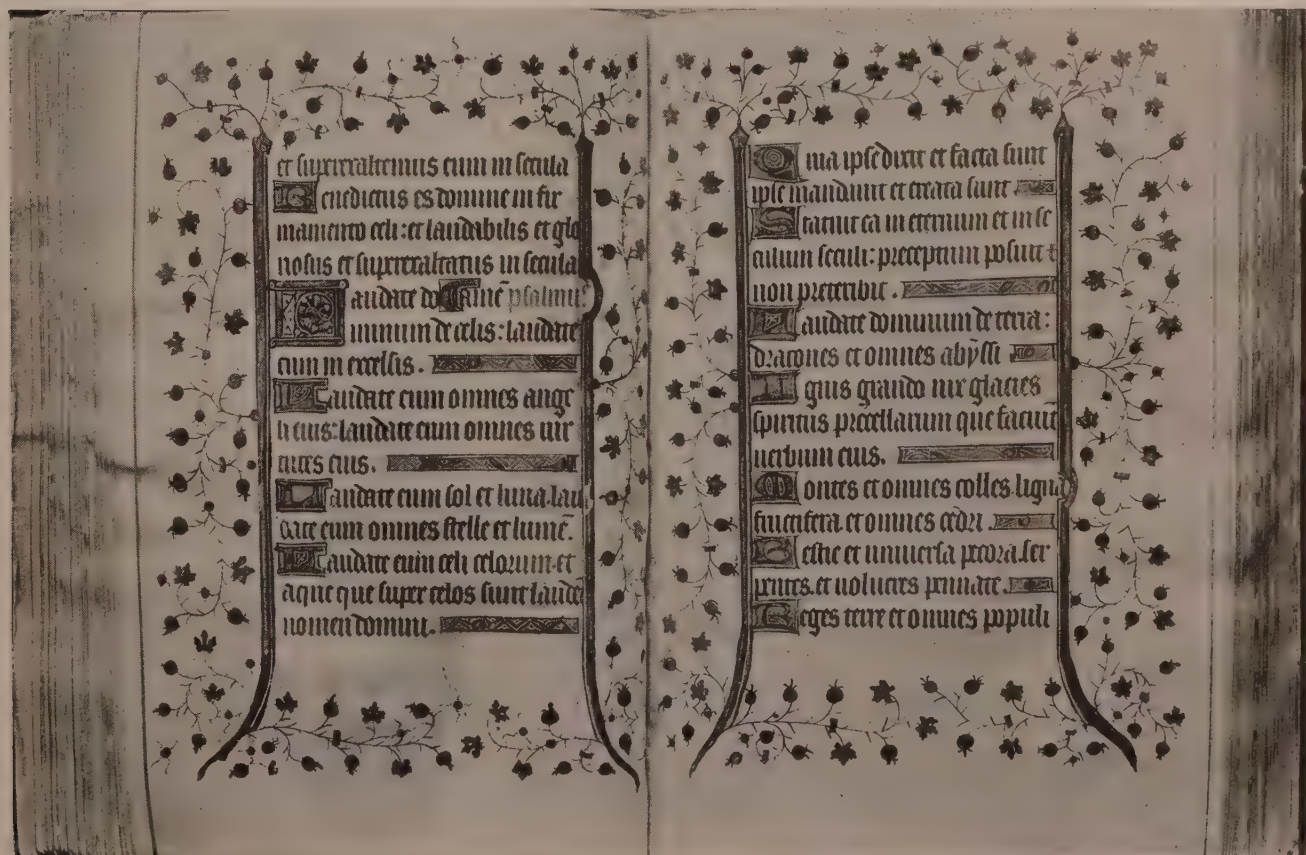 et superexaltemus eum in secula
Benedictus es domine in fir
mamento celi: et laudabilis et glo
riosus et superexaltatus in secula
Laudate do psalmus
minum de celis: laudate
eum in excelsis.
Laudate eum omnes ange
li eius: laudate eum omnes uir
tutes eius.
Laudate eum sol et luna. lau
date eum omnes stelle et lumē.
Laudate eum celi celorum. et
aque que super celos sunt laudēt
nomen domini.
Quia ipse dixit et facta sunt
ipse mandauit et creata sunt
Statuit ea in eternum et in se
culum seculi: preceptum posuit &
non preteribit.
Laudate dominum de terra:
dracones et omnes abyssi
Ignis grando nix glacies
spiritus procellarum que faciūt
uerbum eius.
Montes et omnes colles. ligna
fructifera et omnes cedri.
Bestie et uniuersa pecora. ser
pentes. et uolucres pennate.
Reges terre et omnes populi